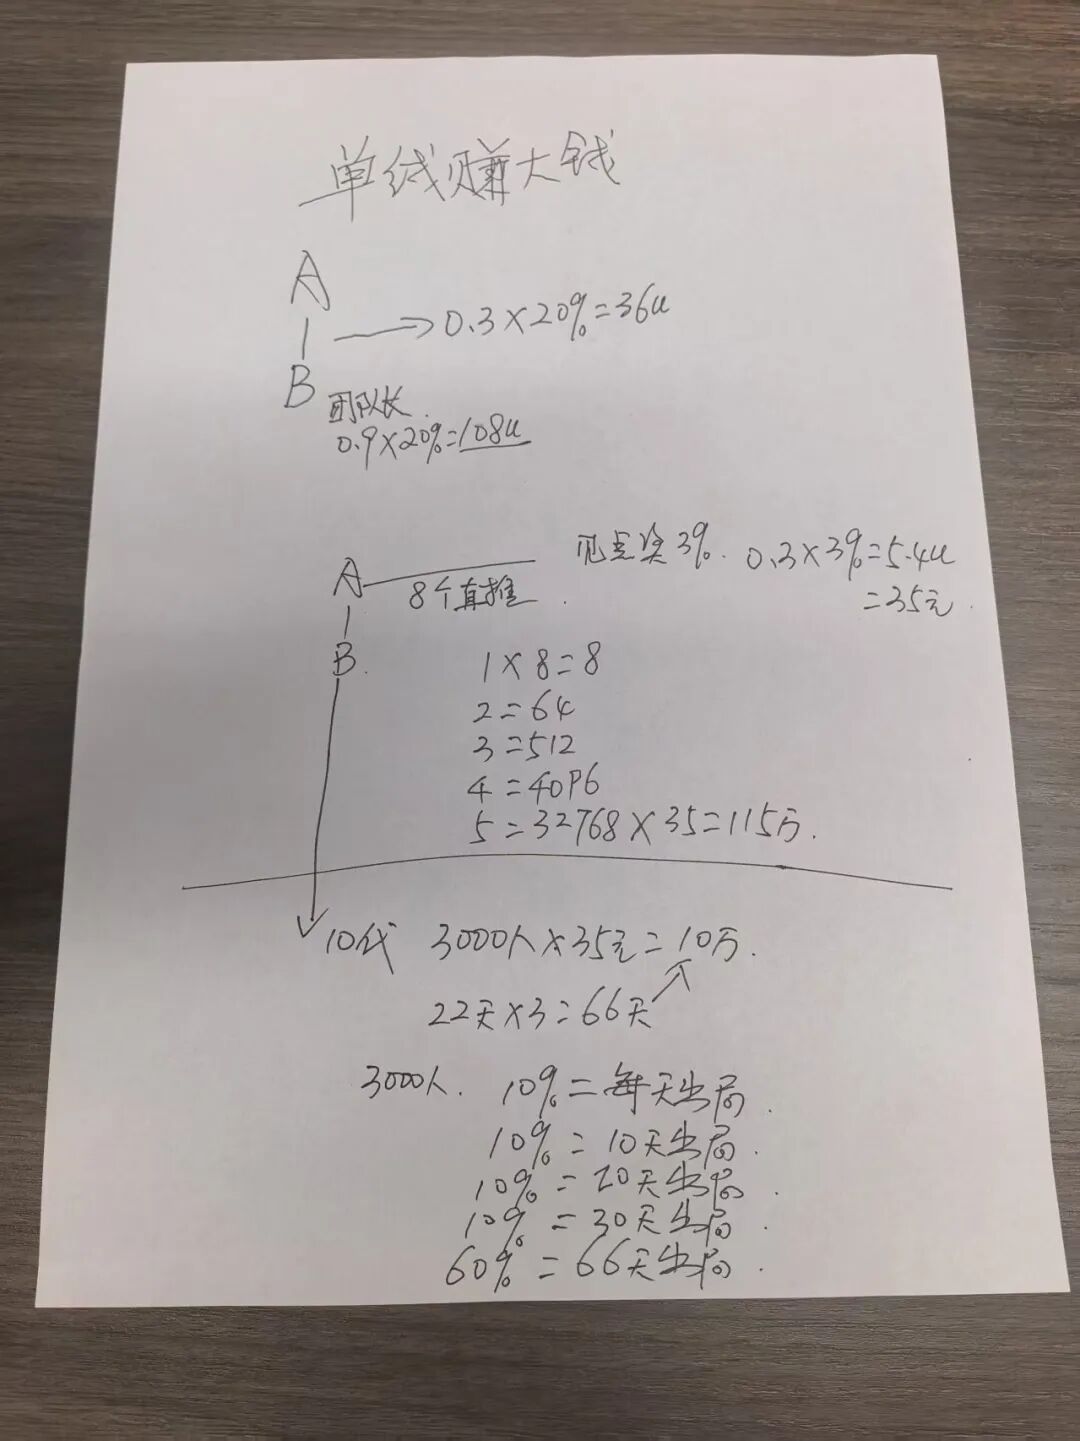 单线赚大钱
A
→0.3×20%=36u
B
团队长.
0.9×20%=108u
见点奖3%. 0.3×3%=5.4u
=35元.
A
8个直推.
B.
1×8=8
2=64
3=512
4=4096
5=32768×35=115万.
10代 3000人×35元=10万.
22天×3=66天
3000人. 10%=每天出局.
10%=10天出局.
10%=20天出局.
10%=30天出局.
60%=66天出局.